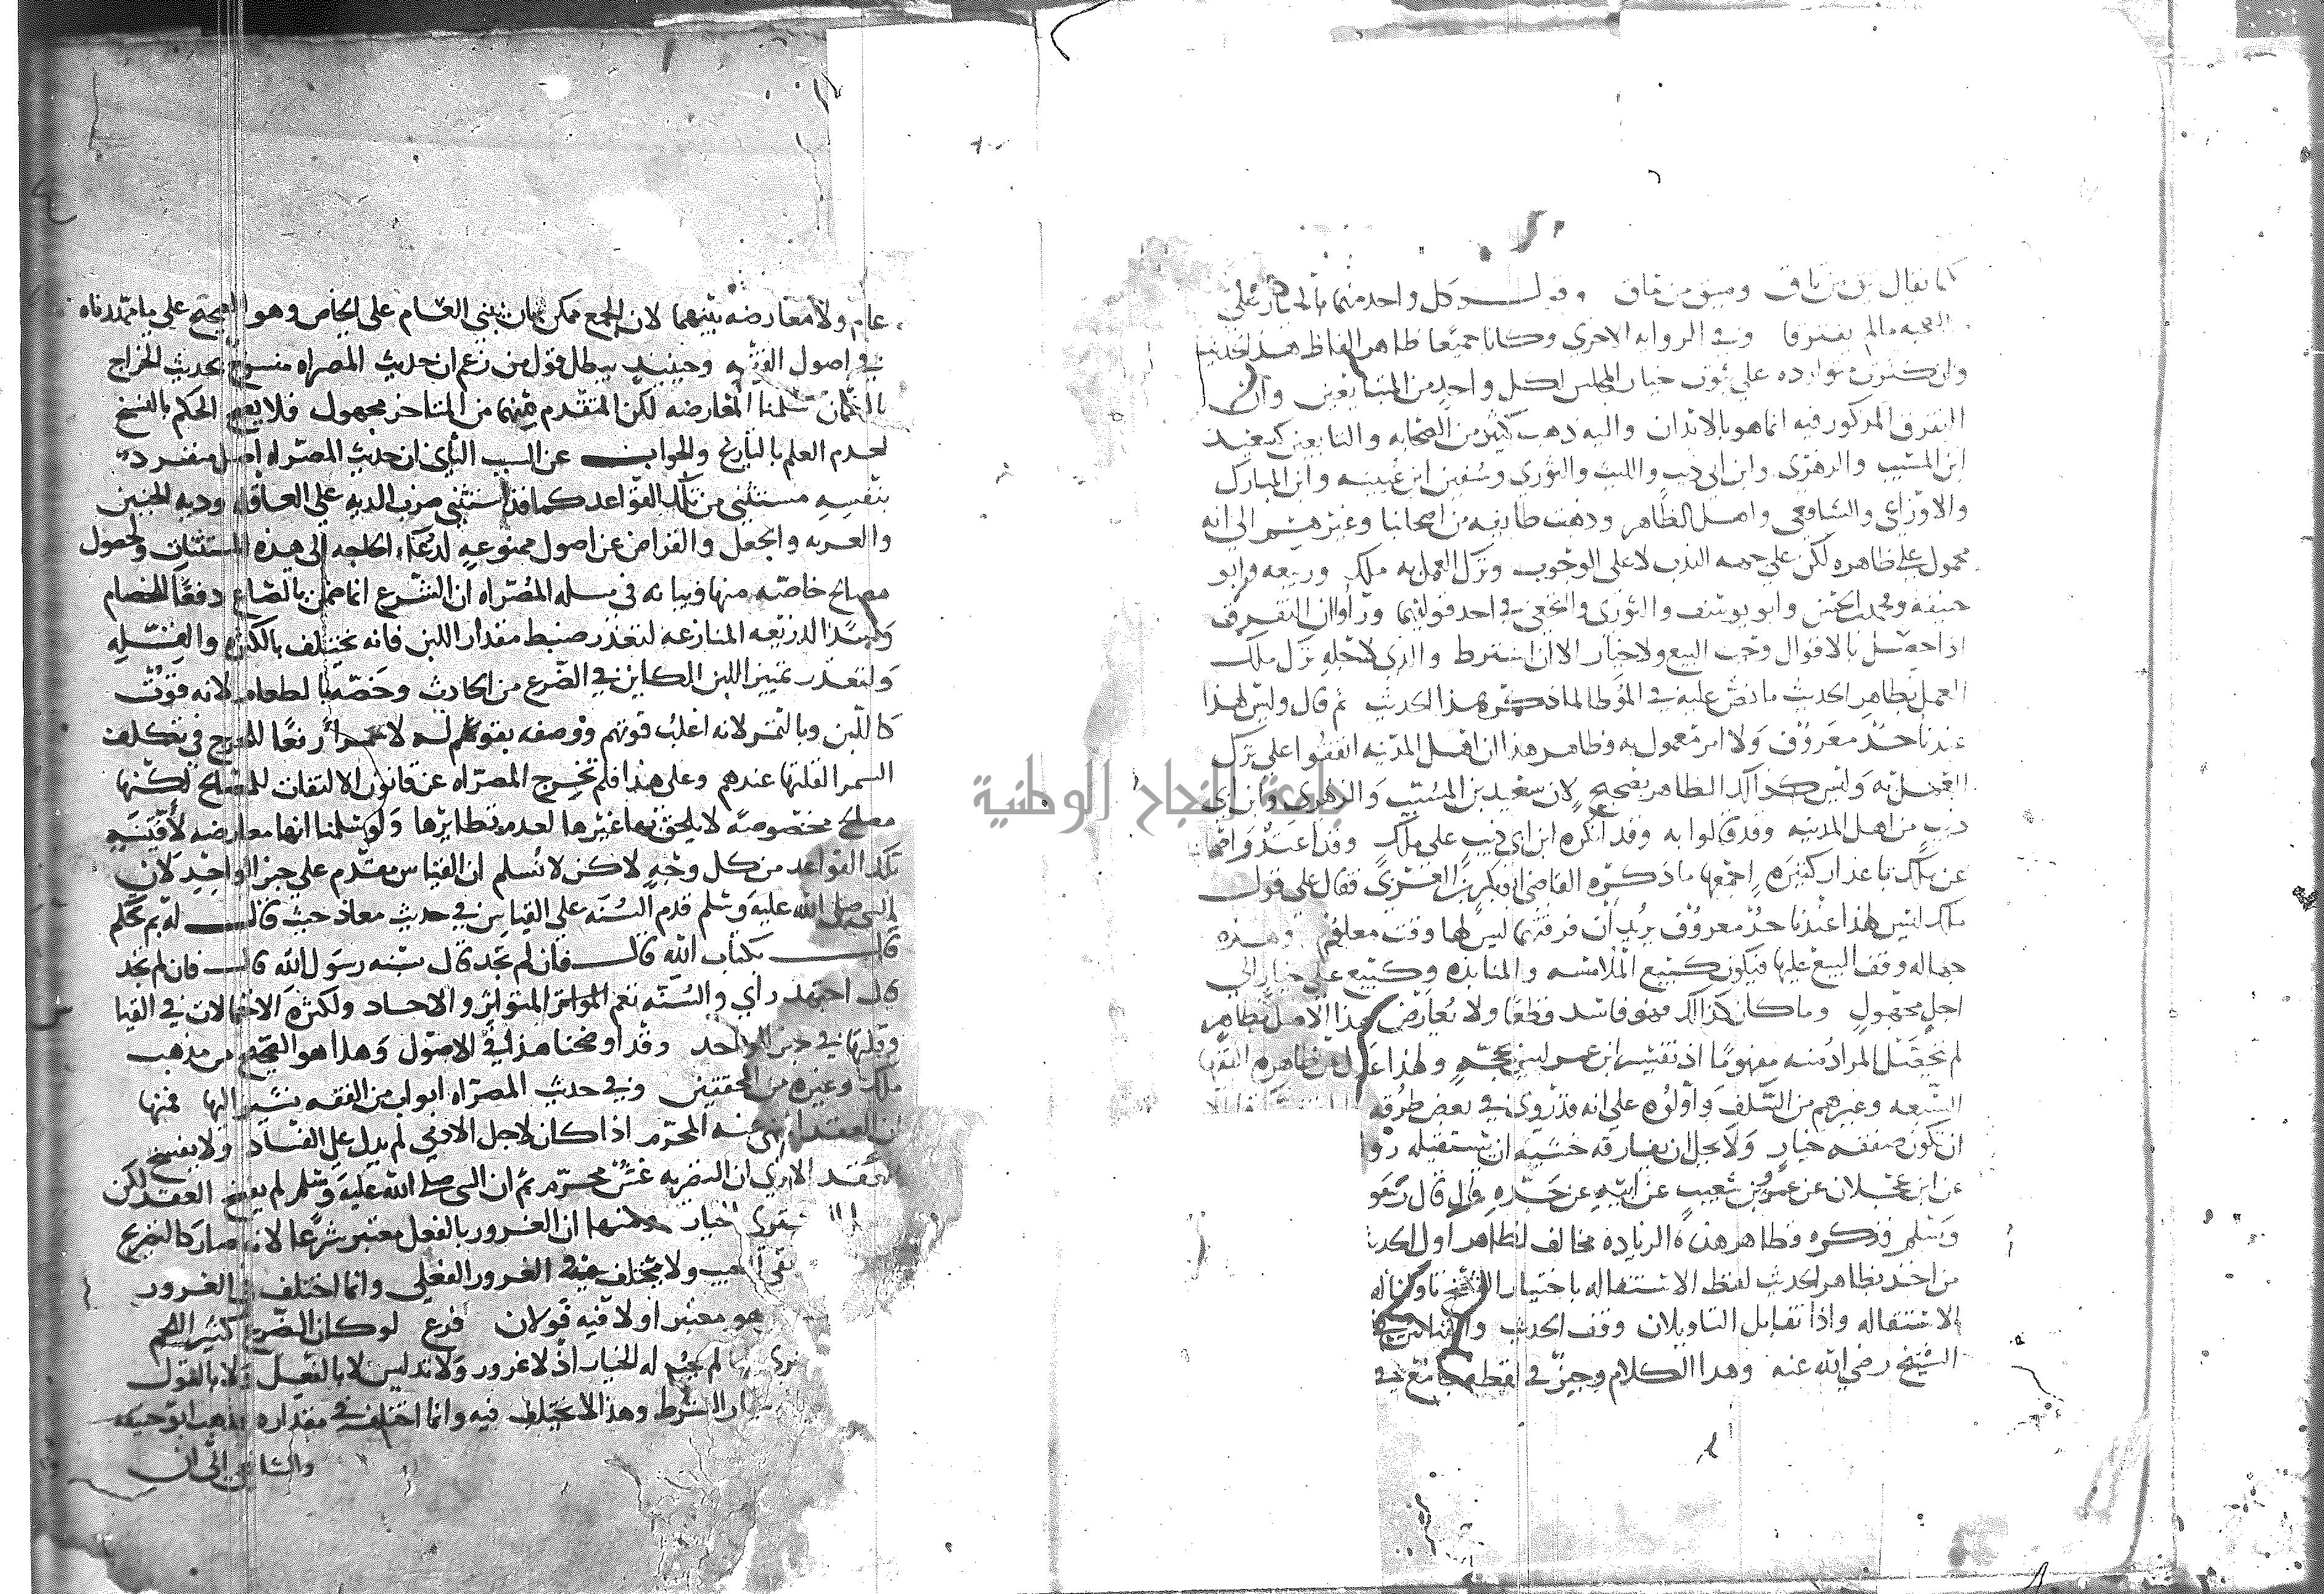 كما يقال من وقوله كل واحد منهما بالخيار على
صاحبه مالم يفترقا وفي الروايه الاخرى وكانا جميعا ظاهر الفاظ هذا الحديث
وان كثرت متوارده على ثبوت خيار المجلس لكل واحد من المتبايعين وان
التفرق المذكور فيه انما هو بالابدان واليه ذهب كثير من الصحابه والتابعين كسعيد
ابن المسيب والزهري وابن ابي ذيب والليث والثوري وسفين ابن عيينه وابن المبارك
والاوزاعي والشافعي واهل الظاهر وذهبت طايفه من اصحابنا وغيرهم الى انه
محمول على ظاهره لكن على جهه الندب لا على الوجوب وترك العمل به ملك وربيعه وابو
حنيفه ومحمد بن الحسن وابو يوسف والثوري والنخعي في احد قوليهما ورأوا ان التفرق
اذا حصل بالاقوال وجب البيع ولا خيار الا ان اشترط والذي لاجله ترك ملك
العمل بظاهر الحديث ما نص عليه في الموطا لما ذكر هذا الحديث ثم قال وليس لهذا
عندنا حد معروف ولا امر معمول به وظاهر هذا ان اهل المدينه اتفقوا على ترك
العمل به وليس كذلك الظاهر بصحيح لان سعيد بن المسيب والزهري وابن ابي
ذيب من اهل المدينه وقد قالوا به وقد انكره ابن ابي ذيب على ملك وقد اعتذر اصحابنا
عن ملك باعذار كثيره اجمعها ما ذكره القاضي ابو بكر بن العربي فقال على قول
ملك ليس لهذا عندنا حد معروف يريد ان فرقتهما ليس لها وقت معلوم وهذه
جهاله وقف البيع عليها فيكون كبيع الملامسه والمنابذه وكبيع على خيار الى
اجل مجهول وما كان كذلك فهو فاسد قطعا ولا يعارض هذا الاصل بظاهر
لم يحصل المراد منه مفهوما اذ تفسير ابن عمر ليس بحجه ولهذا عدل عن ظاهره الفقها
السبعه وغيرهم من السلف واولوه على انه قد روي في بعض طرقه
ان تكون صفقه خيار ولا يحل ان يفارقه خشيه ان يستقيله روا
عن ابن عجلان عن عمرو بن شعيب عن ابيه عن جده قال قال رسو
وسلم فذكره فظاهر هذه الزياده مخالف لظاهر اول الحديث
من اخذ بظاهر الحديث لفظ الاستقاله باختيار الفسخ
الاستقاله واذا تقابل التاويلان وقف الحديث
الشيخ رضي الله عنه وهذا الكلام وجيز في لفظه جامع في
عام ولا معارضه بينهما لان الجمع ممكن بان يبنى العام على الخاص وهو الصحيح على ما مهدناه
في اصول الفقه وحينيذ يبطل قول من زعم ان حديث المصراه منسوخ بحديث الخراج
بالضمان سلمنا المعارضه لكن المتقدم منهما من المتاخر مجهول فلا يصح الحكم بالنسخ
لعدم العلم بالتاريخ والجواب عن السبب الثاني ان حديث المصراه اصل منفرد
بنفسه مستثنى من تلك القواعد كما قد استثني ضرب الديه على العاقله وديه الجنين
والعريه والجعل والقراض عن اصول ممنوعه لدعاء الحاجه الى هذه المستثنات ولحصول
مصالح خاصه منها وبيانه في مسله المصراه ان الشرع انما ضمن بالصاع دفعا للخصام
وسدا لذريعه المنازعه لتعذر ضبط مقدار اللبن فانه يختلف بالكثره والقله
ولتعذر تمييز اللبن الكاين في الضرع من الحادث وخصه بالطعام لانه قوت
كاللبن وبالتمر لانه اغلب قوتهم ووصفه بقوله لا سمرا رفعا للحرج في تكلف
السمرا لقلتها عندهم وعلى هذا فلم تخرج المصراه عن قانون الالتفات للمصالح لكنها
مصلح مخصوصه لا يلحق بها غيرها لعدم نظايرها ولو سلمنا انها معارضه لأقيسه
تلك القواعد من كل وجه لاكن لا نسلم ان القياس مقدم على خبر الواحد لان
النبي صلى الله عليه وسلم قدم السنه على القياس في حديث معاذ حيث قال له بم تحكم
قال بكتاب الله قال فان لم تجد قال بسنه رسول الله قال فان لم تجد
قال اجتهد رأي والسنه تعم المتواتر والاحاد ولكثره الاحتمالات في القيا
وقلتها في خبر الواحد وقد اوضحنا هذا في الاصول وهذا هو الصحيح من مذهب
ملك وغيره من المحققين وفي حديث المصراه ابواب من الفقه نشير اليها فمنها
ان العقد المنهي عنه المحرم اذا كان لاجل الادمي لم يدل على الفساد ولا يفسخ
العقد الا ترى ان التصريه غش محرم ثم ان النبي صلى الله عليه وسلم لم يفسخ العقد لكن
للمشتري الخيار ومنها ان الغرور بالفعل معتبر شرعا لانه صار كالتصريح
العيب ولا يختلف في الغرور الفعلي وانما اختلف في الغرور
هو معتبر اولا فيه قولان فرع لو كان الضرع كثير اللحم
لم يجب له الخيار اذ لا غرور ولا تدليس لا بالفعل ولا بالقول
الشرط وهذا لا يختلف فيه وانما اختلف في مقداره فذهب ابو حنيفه
والشافعي الى ان
جامعة النجاح الوطنية